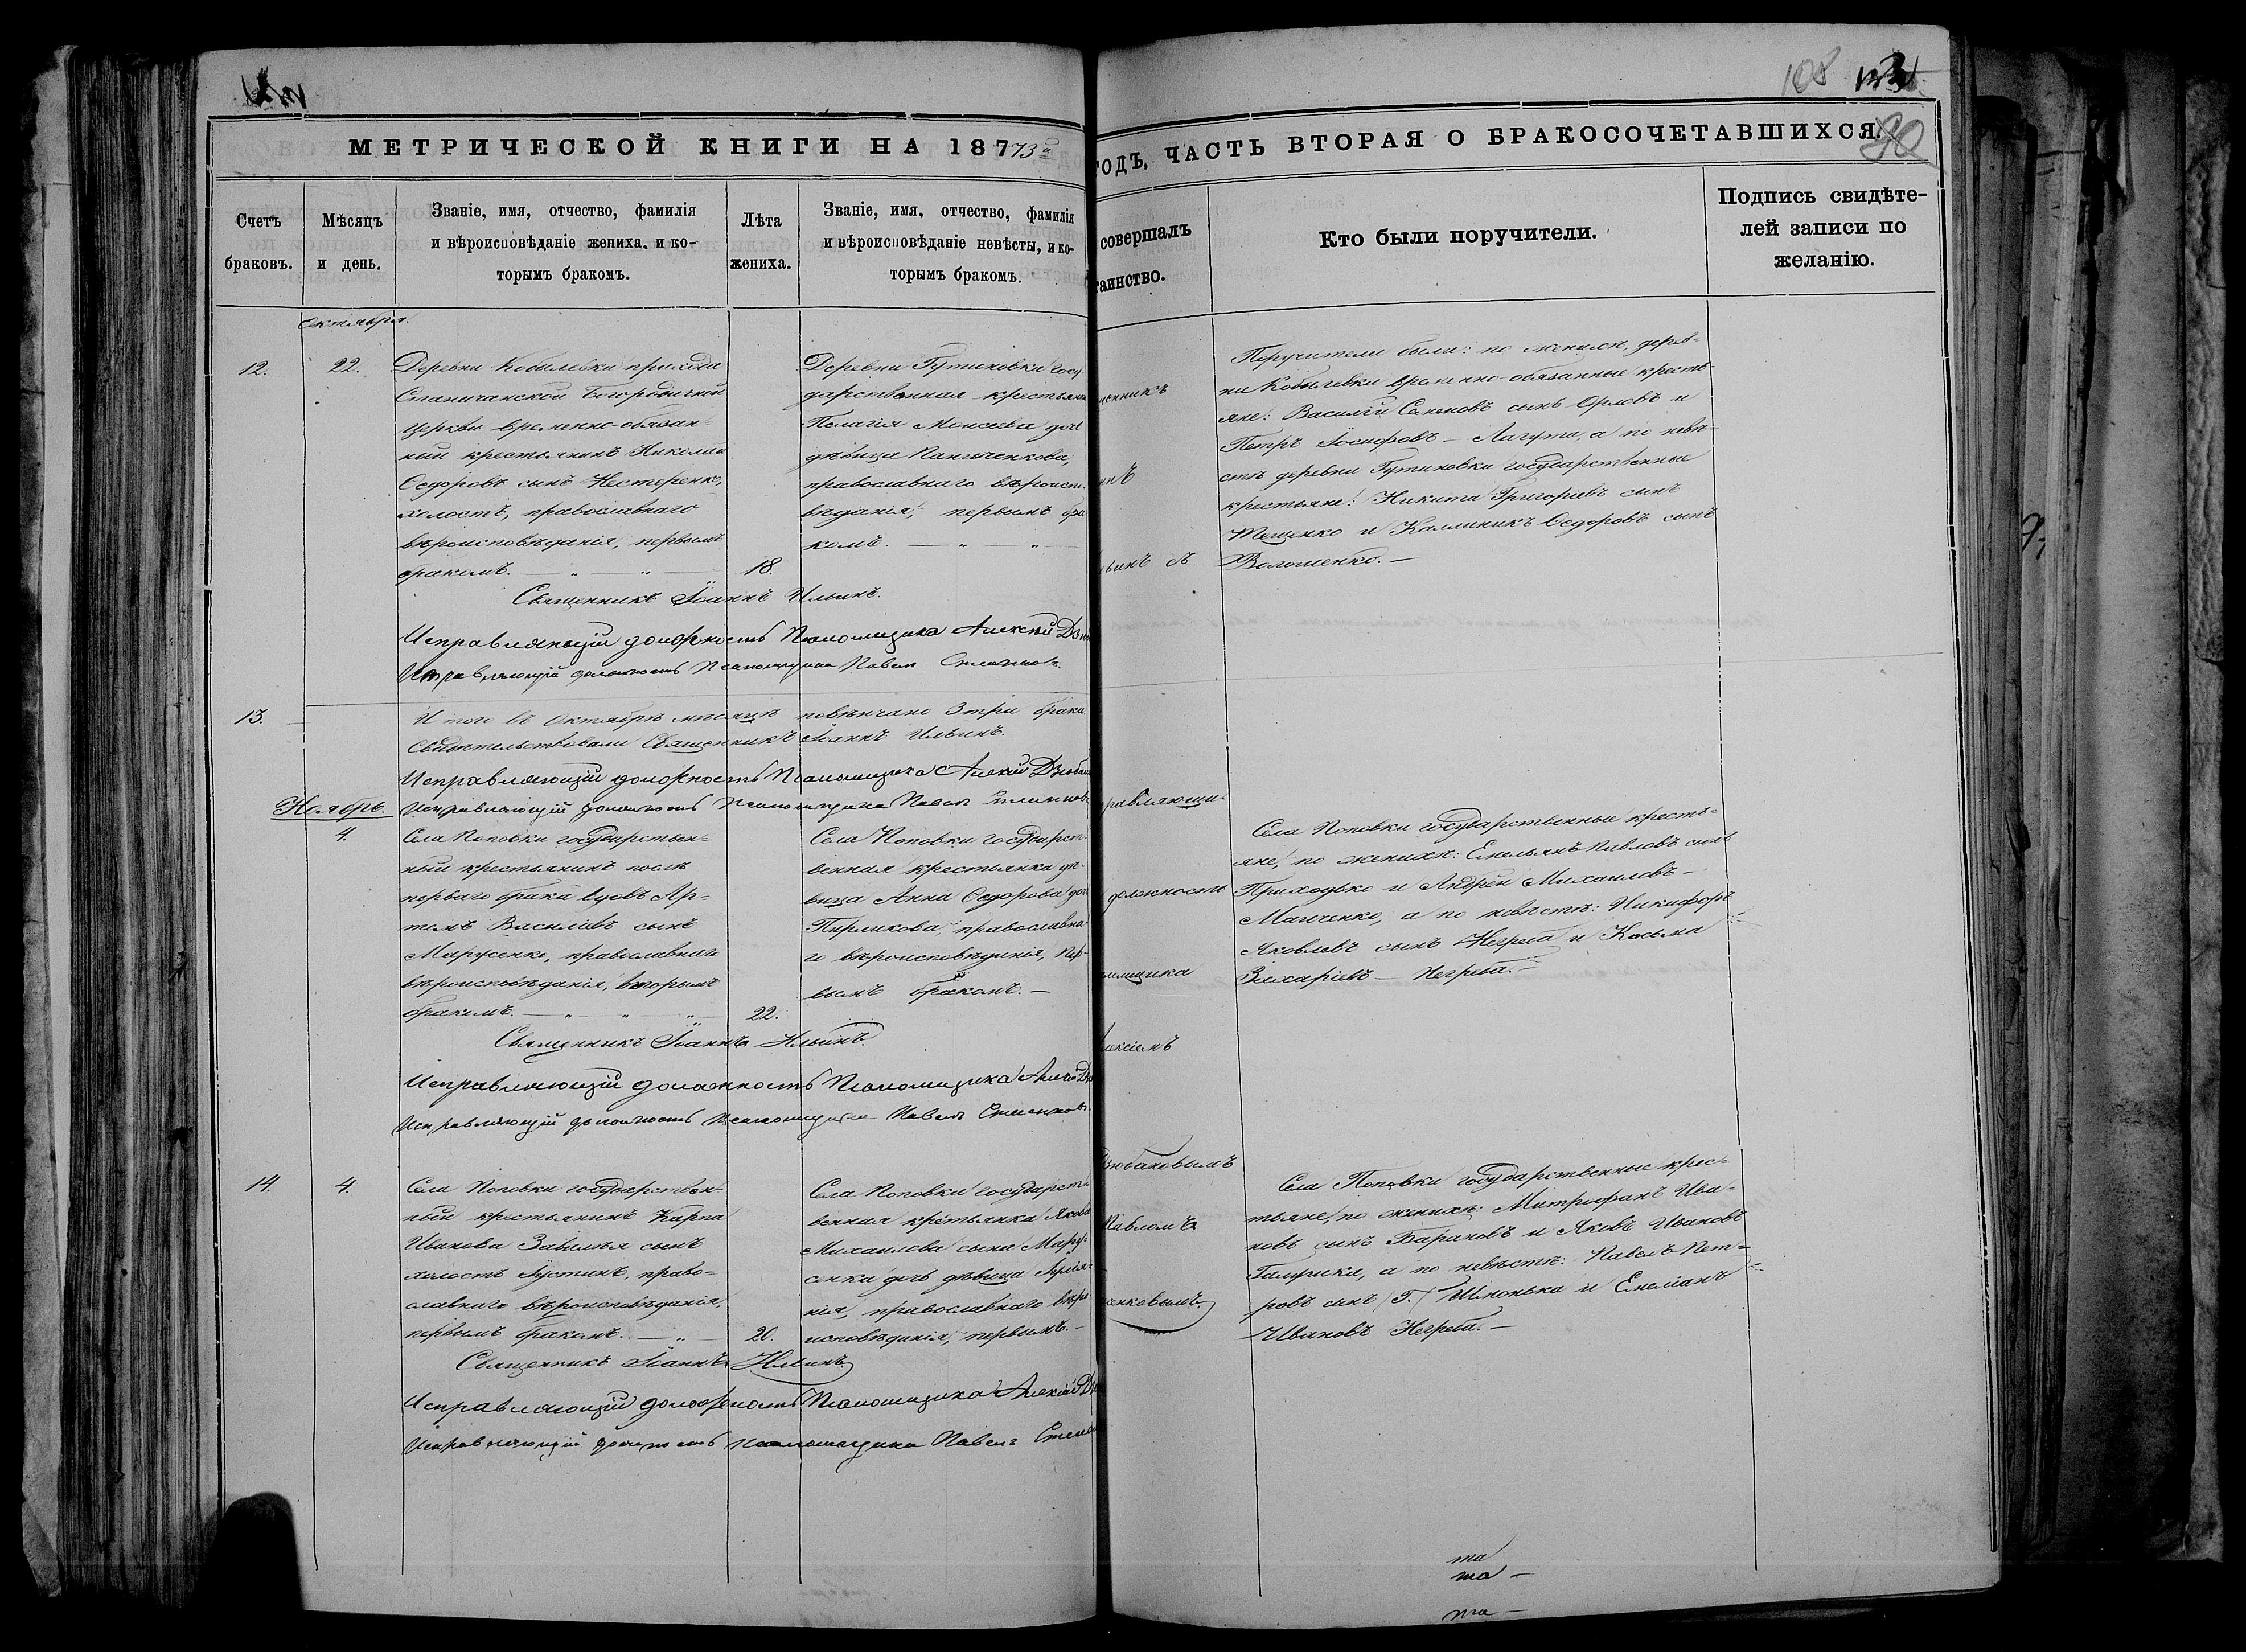 108
МЕТРИЧЕСКОЙ КНИГИ НА 18773й
ГОДЪ, ЧАСТЬ ВТОРАЯ О БРАКОСОЧЕТАВШИХСЯ.
90
Счетъ
браковъ.
Мѣсяцъ
и день.
Званіе, имя, отчество, фамилія
и вѣроисповѣданіе жениха, и ко-
торымъ бракомъ.
Лѣта
жениха.
Званіе, имя, отчество, фамилія
и вѣроисповѣданіе невѣсты, и ко-
торымъ бракомъ.
совершалъ
таинство.
Кто были поручители.
Подпись свидѣте-
лей записи по
желанію.
Октября.
12.
22.
Деревни Кобылевки прихода
Станичанской Богородичной
церкви временно-обязан-
ный крестьянинъ Николай
Ѳедоровъ сынъ Нестеренко,
холостъ, православнаго
вѣроисповѣданія, первымъ
бракомъ. — „ — „ —
18.
Деревни Гутиковки госу-
дарственная крестьянка
Пелагія Моисеева доч
дѣвица
православнаго вѣроиспо-
вѣданія, первымъ бра
комъ. — „ — „ —
Поручители были: по женихѣ, дерев-
ни Кобылевки временно-обязанные кресть-
яне: Василій Семеновъ сынъ Орловъ и
Петръ Іосифовъ — Лагута, а по невѣ-
стѣ деревни Гутиковки государственные
крестьяне: Никита Григоріевъ сынъ
Тещенко и Каллиникъ Ѳедоровъ сынъ
Волошенко. —
Священникъ Іоаннъ Ильинъ.
Исправляющій должность Псаломщика Алексій Дзю
Исправляющій должность Псаломщика Павелъ
13.
Итого въ Октябрѣ мѣсяцѣ повѣнчано 3 три брака.
Свидѣтельствовали Священникъ Іоаннъ Ильинъ.
Исправляющій должность Псаломщика Алексій Дзюба
Ноябрь.
Исправляющій должность Псаломщика Павелъ
4.
Села Поповки государствен-
ный крестьянинъ послѣ
перваго брака вдовъ Ар-
темъ Василіевъ сынъ
Марусенко, православнаго
вѣроисповѣданія, вторымъ
бракомъ. — „ — „ — „ —
22.
Села Поповки государст-
венная крестьянка дѣ-
вица Анна Ѳедорова доч
православна-
го вѣроисповѣданія, пер-
вымъ бракомъ. —
равляющи-
должности
ломщика
лексіемъ
Села Поповки государственные кресть-
яне, по женихѣ: Емельянъ Павловъ сынъ
Приходько и Андрей Михаиловъ —
а по невѣстѣ: Никифоръ
Яковлевъ сынъ Негреба и Косьма
Захаріевъ — Негреба. —
Священникъ Іоаннъ Ильинъ.
Исправляющій должность Псаломщика Алексій Дз
Исправляющій должность Псаломщика Павелъ
14.
4.
Села Поповки государствен-
ный крестьянинъ Карпа
Иванова сынъ
холостъ Іустинъ, право-
славнаго вѣроисповѣданія,
первымъ бракомъ. — „ —
20.
Села Поповки государст-
венная крестьянка Якова
Михаилова сына Мару-
сенка дочь дѣвица
нія, православнаго вѣро
исповѣданія, первымъ. —
зюбановымъ
Павломъ
енковымъ.
Села Поповки государственные крес-
тьяне, по женихѣ: Митрофанъ Ива-
новъ сынъ Барановъ и Яковъ Ивановъ
а по невѣстѣ: Павелъ Пет-
ровъ сынъ (Г.) Шпонька и Емеліанъ
Ивановъ Негреба. —
Священникъ Іоаннъ Ильинъ.
Исправляющій должность Псаломщика Алексій Дз
Исправляющій должность Псаломщика Павелъ
та
та —
та —